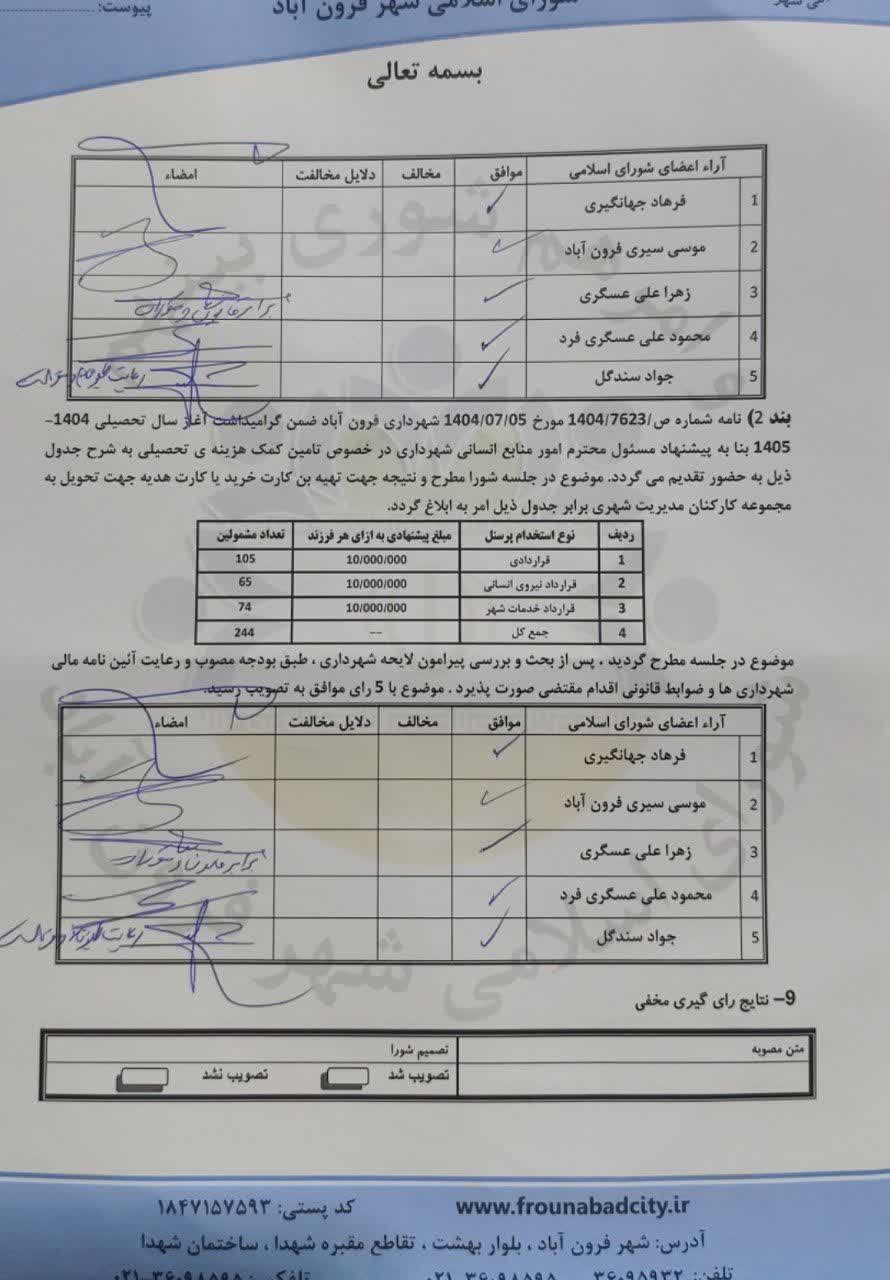 شورای اسلامی شهر فرون آباد
پیوست:
بسمه تعالی
آراء اعضای شورای اسلامی موافق مخالف دلایل مخالفت امضاء
1 فرهاد جهانگیری
2 موسی سیری فرون آباد
3 زهرا علی عسگری
4 محمود علی عسگری فرد
5 جواد سندگل
بند 2) نامه شماره ص/1404/7623 مورخ 1404/07/05 شهرداری فرون آباد ضمن گرامیداشت آغاز سال تحصیلی 1404–
1405 بنا به پیشنهاد مسئول محترم امور منابع انسانی شهرداری در خصوص تامین کمک هزینه ی تحصیلی به شرح جدول
ذیل به حضور تقدیم می گردد. موضوع در جلسه شورا مطرح و نتیجه جهت تهیه بن کارت خرید یا کارت هدیه جهت تحویل به
مجموعه کارکنان مدیریت شهری برابر جدول ذیل امر به ابلاغ گردد.
ردیف نوع استخدام پرسنل مبلغ پیشنهادی به ازای هر فرزند تعداد مشمولین
1 قراردادی 10/000/000 105
2 قرارداد نیروی انسانی 10/000/000 65
3 قرارداد خدمات شهر 10/000/000 74
4 جمع کل --- 244
موضوع در جلسه مطرح گردید ، پس از بحث و بررسی پیرامون لایحه شهرداری ، طبق بودجه مصوب و رعایت آئین نامه مالی
شهرداری ها و ضوابط قانونی اقدام مقتضی صورت پذیرد . موضوع با 5 رای موافق به تصویب رسید.
آراء اعضای شورای اسلامی موافق مخالف دلایل مخالفت امضاء
1 فرهاد جهانگیری
2 موسی سیری فرون آباد
3 زهرا علی عسگری
4 محمود علی عسگری فرد
5 جواد سندگل
9– نتایج رای گیری مخفی
متن مصوبه تصمیم شورا
تصویب شد تصویب نشد
www.frounabadcity.ir کد پستی: ۱۸۴۷۱۵۷۵۹۳
آدرس: شهر فرون آباد ، بلوار بهشت ، تقاطع مقبره شهدا ، ساختمان شهدا
تلفن: ۳۶۰۹۸۹۳۲